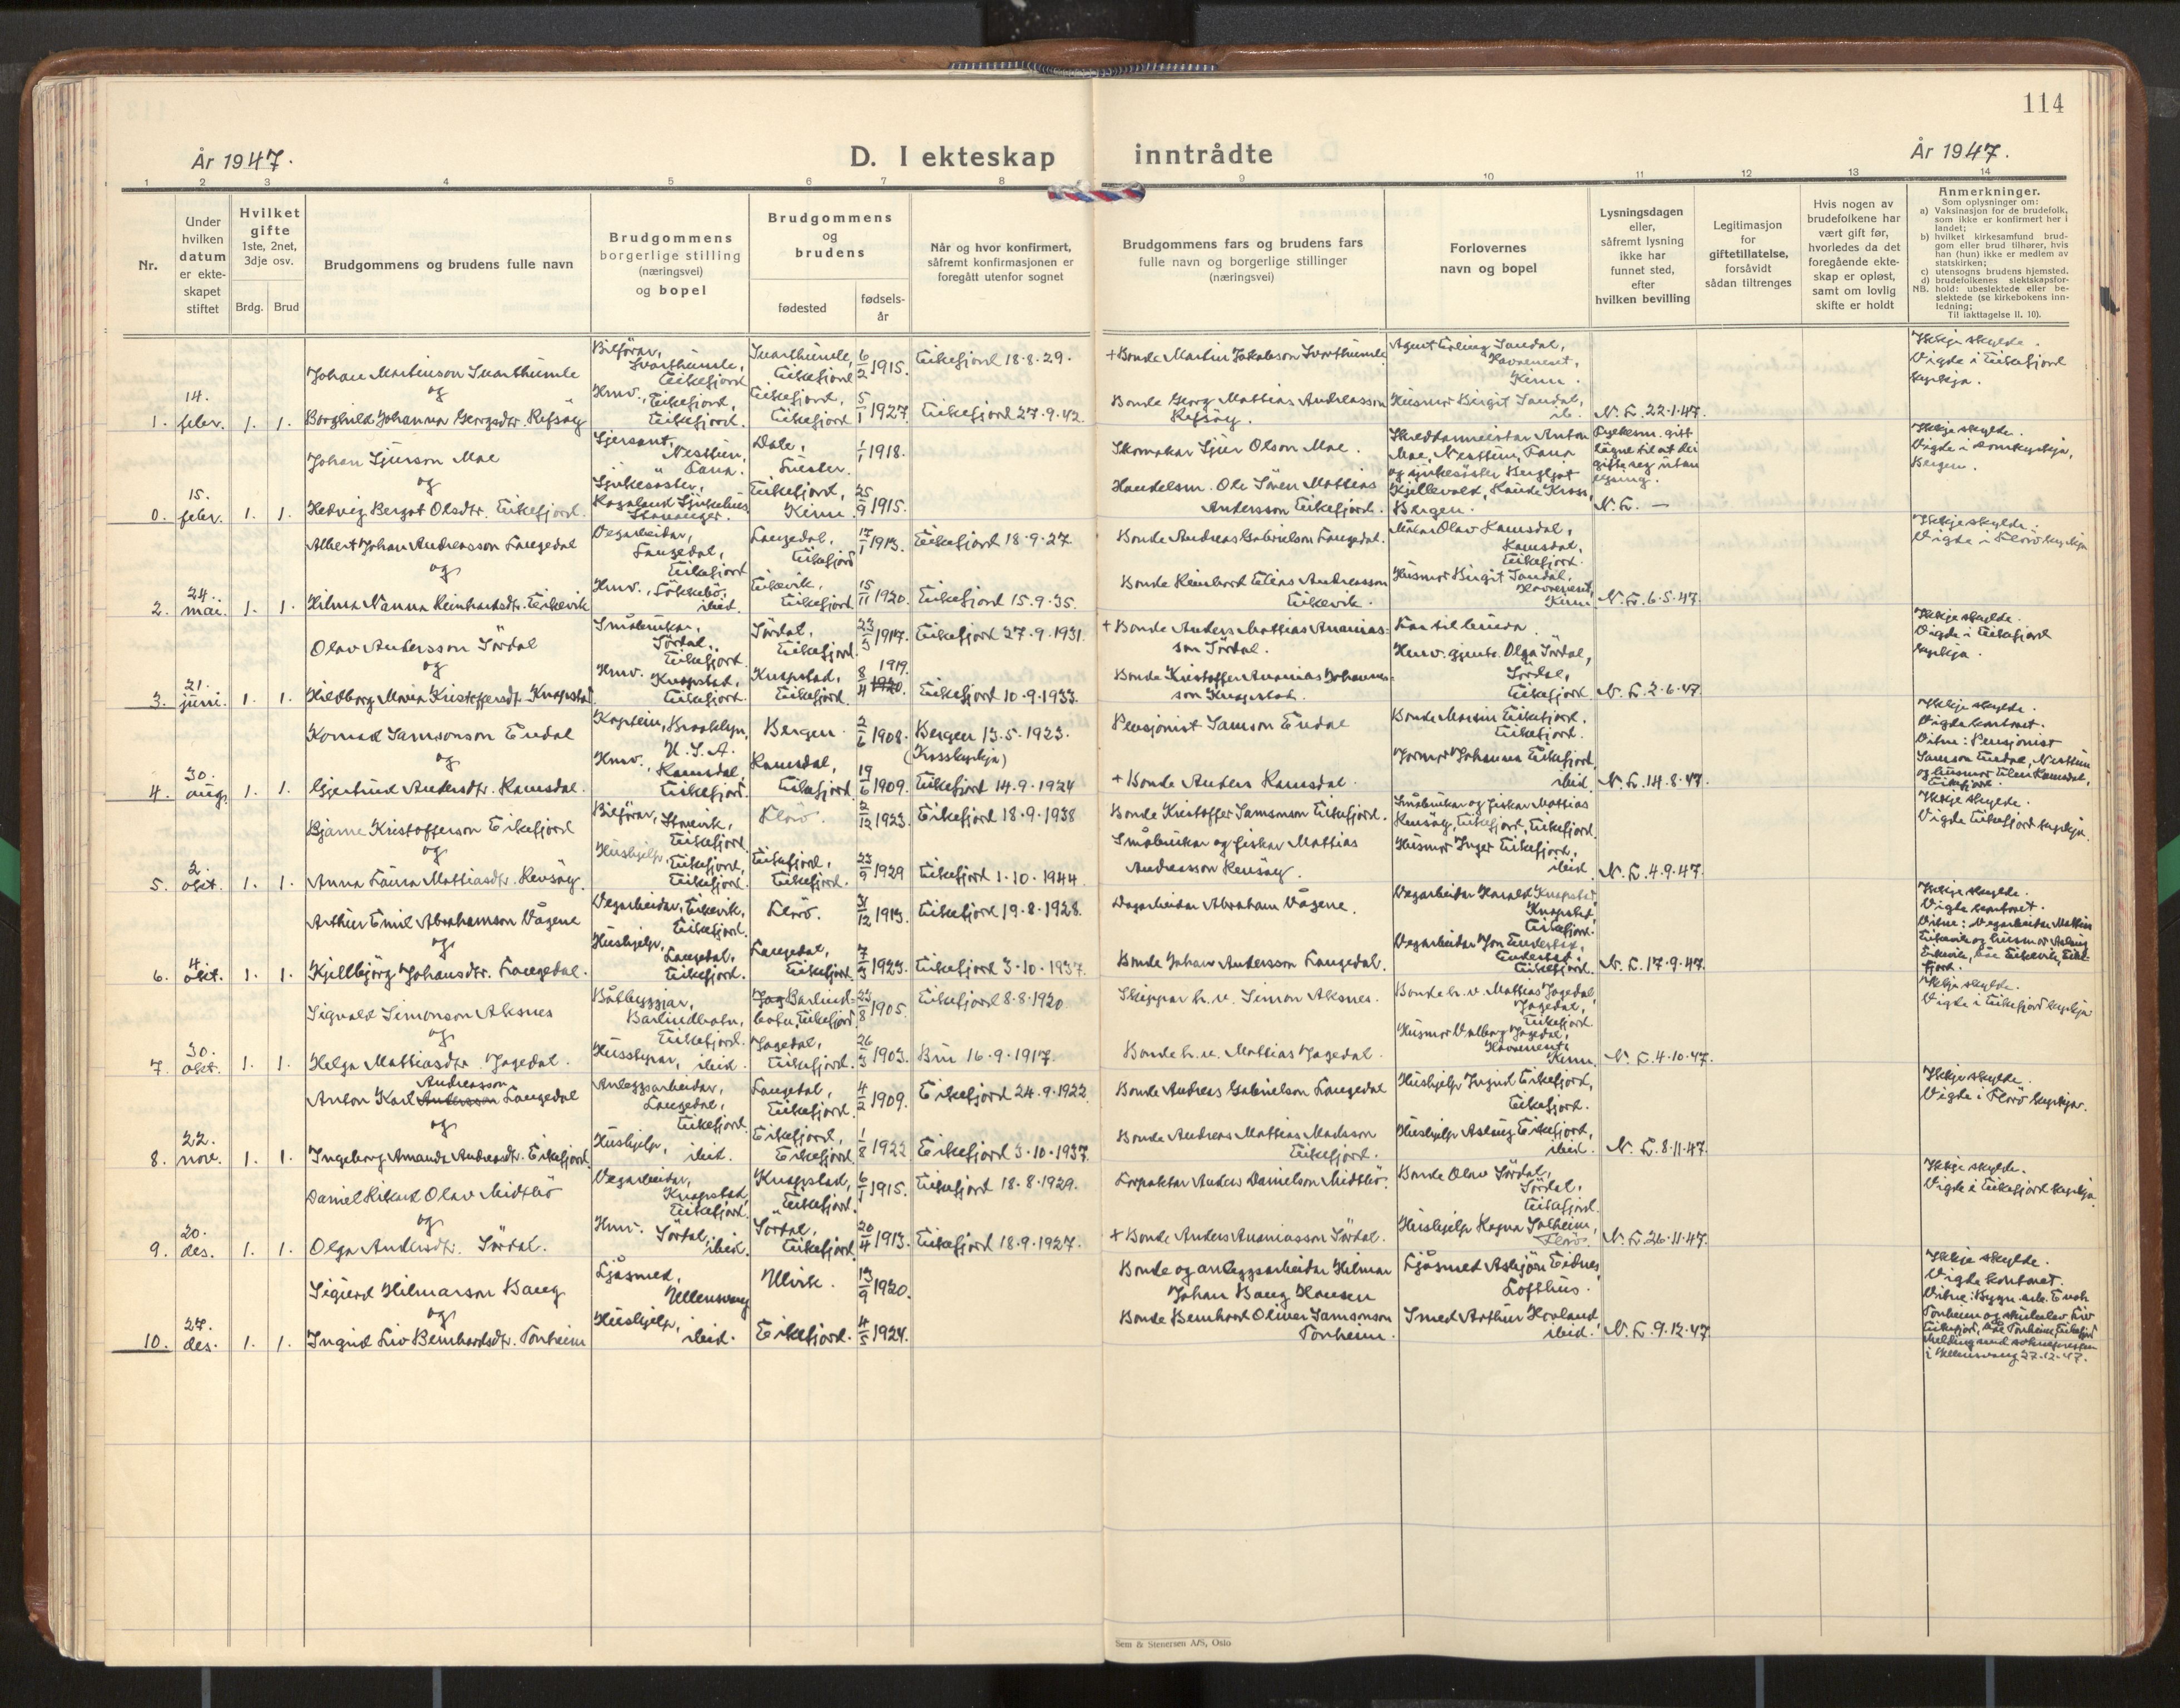 114
År 1947.
D. I ekteskap inntrådte
År 1947.
1 2 3 4 5 6 7 8 9 10 11 12 13 14
Nr.
Under hvilken datum er ekteskapet stiftet
Hvilket gifte
1ste, 2net, 3dje osv.
Brdg. Brud
Brudgommens og brudens fulle navn
Brudgommens borgerlige stilling (næringsvei) og bopel
Brudgommens og brudens
fødested
fødsels-år
Når og hvor konfirmert, såfremt konfirmasjonen er foregått utenfor sognet
Brudgommens fars og brudens fars fulle navn og borgerlige stillinger (næringsvei)
Forlovernes navn og bopel
Lysningsdagen eller, såfremt lysning ikke har funnet sted, efter hvilken bevilling
Legitimasjon for giftetillatelse, forsåvidt sådan tiltrenges
Hvis nogen av brudefolkene har vært gift før, hvorledes da det foregående ekteskap er opløst, samt om lovlig skifte er holdt
Anmerkninger.
Som oplysninger om:
a) Vaksinasjon for de brudefolk, som ikke er konfirmert her i landet;
b) hvilket kirkesamfund brudgom eller brud tilhører, hvis han (hun) ikke er medlem av statskirken;
c) utensogns brudens hjemsted.
d) brudefolkenes slektskapsforhold: ubeslektede eller beslektede (se kirkebokens innledning;
NB.
Til iakttagelse II. 10).
1. 14. febr. 1. 1.
Johan Martinson Svarthumle
og
Borghild Johanna Georgsdtr. Refsåg
Bilförar, Svarthumle, Eikefjord
Hmv., Eikefjord, Eikefjord.
Svarthumle, Eikefjord 6/2 1915.
Eikefjord, Eikefjord 5/1 1927.
Eikefjord 18.8.29.
Eikefjord 27.9.42.
+ Bonde Martin Jakobson Svarthumle
Bonde Georg Mattias Andreasson Refsåg.
Agent Erling Sandal, Havreneset, Kinn.
Husmor Birgit Sandal, ib.
N. L. 22.1.47.
Ikkje skylde.
Vigde i Eikefjord kyrkja.
0. 15. febr. 1. 1.
Johan Sjurson Moe
og
Hedvig Bergot Olsdtr. Eikefjord.
Sjersant, Nesttun, Fana.
Sjukesöster, Rogaland Sjukehus Stavanger.
Dale, Luster. 1/1 1918.
Eikefjord, Kinn. 25/9 1915.
Skomakar Sjur Olson Moe.
Handelsm. Ole Sören Mattias Andersson Eikefjord.
Skreddarmeistar Anton Moe, Nesttun, Fana
og sjukesöster Bergljot Kjellevold, Raude Kross, Bergen.
Fylkesm. gitt lögne til at dei gifte seg utan lysing.
N. L. —
Ikkje skylde.
Vigde i domkyrkja, Bergen.
2. 24. mai. 1. 1.
Albert Johan Andreasson Langedal
og
Hilma Nanna Reinhardsdtr. Eikevik
Vegarbeidar, Langedal, Eikefjord
Hmv., Lökkebö, ibid.
Langedal, Eikefjord 17/1 1913.
Eikevik, Eikefjord. 15/11 1920.
Eikefjord 18.9.27.
Eikefjord 15.9.35.
Bonde Andreas Gabrielson Langedal.
Bonde Reinhard Elias Andreasson Eikevik.
Målar Olav Ramsdal, Ramsdal, Eikefjord.
Husmor Birgit Sandal, Havreneset, Kinn
N. L. 6.5.47.
Ikkje skylde.
Vigde i Florö kyrkja
3. 21. juni. 1. 1.
Olav Andersson Sördal
og
Hildborg Maria Kristoffersdtr. Knapstad
Småbrukar, Sördal, Eikefjord.
Hmv. Knapstad, Eikefjord.
Sördal, Eikefjord. 23/3 1917.
Knapstad, Eikefjord. 8/4 1919. 1920.
Eikefjord 27.9.1931
Eikefjord 10.9.1933.
+ Bonde Anders Mattias Ananiasson Sördal.
Bonde Kristoffer Ananias Johannesson Knapstad.
Far til bruda.
Hmv. gjente Olga Sördal, Sördal, Eikefjord
N. L. 2.6.47
Ikkje skylde.
Vigde i Eikefjord kyrkja.
4. 30. aug. 1. 1.
Konrad Samsonson Endal
og
Gjertrud Andersdtr. Ramsdal.
Kaptein, Brooklyn, U.S.A.
Hmv., Ramsdal, Eikefjord.
Bergen. 2/6 1908.
Ramsdal, Eikefjord. 19/6 1909.
Bergen 13.5.1923. (Krosskyrkja)
Eikefjord 14.9.1924
Pensjonist Samson Endal
+ Bonde Anders Ramsdal.
Bonde Martin Eikefjord, Eikefjord.
Jormor Johanna Eikefjord, ibid
N. L. 14.8.47.
Ikkje skylde.
Vigde kontoret.
Vitne: Pensjonist Samson Endal, Nesttun og husmor Ellen Ramsdal, Eikefjord.
5. 2. okt. 1. 1.
Bjarne Kristofferson Eikefjord
og
Anna Laura Mattiasdtr. Rensåg.
Bilförar, Storevik, Eikefjord
Hushjelp, Eikefjord, Eikefjord.
Florö. 2/12 1923.
Eikefjord, Eikefjord. 23/9 1929
Eikefjord 18.9.1938
Eikefjord 1.10.1944.
Bonde Kristoffer Samsonson Eikefjord.
Småbrukar og fiskar Mattias Andreasson Rensåg.
Småbrukar og fiskar Mattias Rensåg, Eikefjord, Eikefjord.
Husmor Inger Eikefjord, ibid.
N. L. 4.9.47.
Ikkje skylde.
Vigde Eikefjord kyrkja.
6. 4. okt. 1. 1.
Arthur Emil Abrahamson Vågene
og
Kjellbjörg Johansdtr. Langedal.
Vegarbeidar, Eikevik, Eikefjord.
Hushjelp, Langedal, Eikefjord.
Florö. 31/12 1913.
Langedal, Eikefjord. 7/3 1923.
Eikefjord 19.8.1928.
Eikefjord 3.10.1937.
Dagarbeidar Abraham Vågene.
Bonde Johan Andersson Langedal.
Vegarbeidar Harald Knapstad, Knapstad, Eikefjord.
Vegarbeidar Jon Endestad, Endestad, Eikefjord.
N. L. 17.9.47.
Ikkje skylde.
Vigde kontoret.
Vitne: Vegarbeidar Mattias Eikevik og husmor Aslaug Eikevik, båe Eikevik, Eikefjord.
7. 30. okt. 1. 1.
Sigvald Simonson Aksnes
og
Helga Mattiasdtr. Jagedal.
Båtbyggjar, Barlindbotn, Eikefjord.
Husstyrar, ibid.
Jag Barlindbotn, Eikefjord. 23/8 1905.
Jagedal, Eikefjord. 26/3 1903.
Eikefjord 8.8.1920.
Bru 16.9.1917.
Skippar h. v. Simon Aksnes.
Bonde h. v. Mattias Jagedal.
Bonde h. v. Mattias Jagedal, Jagedal, Eikefjord
Husmor Valborg Jagedal, Havreneset, Kinn.
N. L. 4.10.47.
Ikkje skylde.
Vigde i Eikefjord kyrkja
8. 22. nov. 1. 1.
Anton Karl Andersson Andreasson Langedal
og
Ingeborg Amanda Andreasdtr. Eikefjord.
Anleggsarbeidar, Langedal, Eikefjord
Hushjelp, ibid.
Langedal, Eikefjord. 4/2 1909.
Eikefjord, Eikefjord. 1/8 1922
Eikefjord 24.9.1922.
Eikefjord 3.10.1937.
Bonde Andreas Gabrielson Langedal
Bonde Andreas Mattias Madsson Eikefjord.
Hushjelp Ingrid Eikefjord, Eikefjord.
Hushjelp Aslaug Eikefjord, ibid.
N. L. 8.11.47.
Ikkje skylde.
Vigde i Florö kyrkja.
9. 20. des. 1. 1.
Daniel Rikard Olav Midtbö
og
Olga Andersdtr. Sördal.
Vegarbeidar, Knapstad, Eikefjord.
Hmv. Sördal, ibid.
Knapstad, Eikefjord. 6/1 1915.
Sördal, Eikefjord. 20/4 1913.
Eikefjord 18.8.1929.
Eikefjord 18.9.1927.
Forpaktar Anders Danielson Midtbö.
+ Bonde Anders Ananiasson Sördal.
Bonde Olav Sördal, Sördal, Eikefjord.
Hushjelp Ragna Solheim, Florö.
N. L. 26.11.47.
Ikkje skylde.
Vigde i Eikefjord kyrkja.
10. 27. des. 1. 1.
Sigurd Hilmarson Baug
og
Ingrid Liv Bernhardsdtr. Tonheim
Ljåsmed, Ullensvang
Hushjelp, ibid.
Ulvik. 13/9 1920.
Eikefjord. 4/5 1924.
Bonde og anleggsarbeidar Hilmar Johan Baug Hansen
Bonde Bernhard Oliver Samsonson Tonheim.
Ljåsmed Asbjörn Eidnes, Lofthus.
Smed Arthur Hovland, ibid.
N. L. 9.12.47.
Ikkje skylde.
Vigde kontoret.
Vitne: Bygn. arb. Enok Tonheim og skuleelev Liv Eikefjord, båe Tonheim, Eikefjord
Melding send soknepresten i Ullensvang 27.12.47.
Sem & Stenersen A/S, Oslo